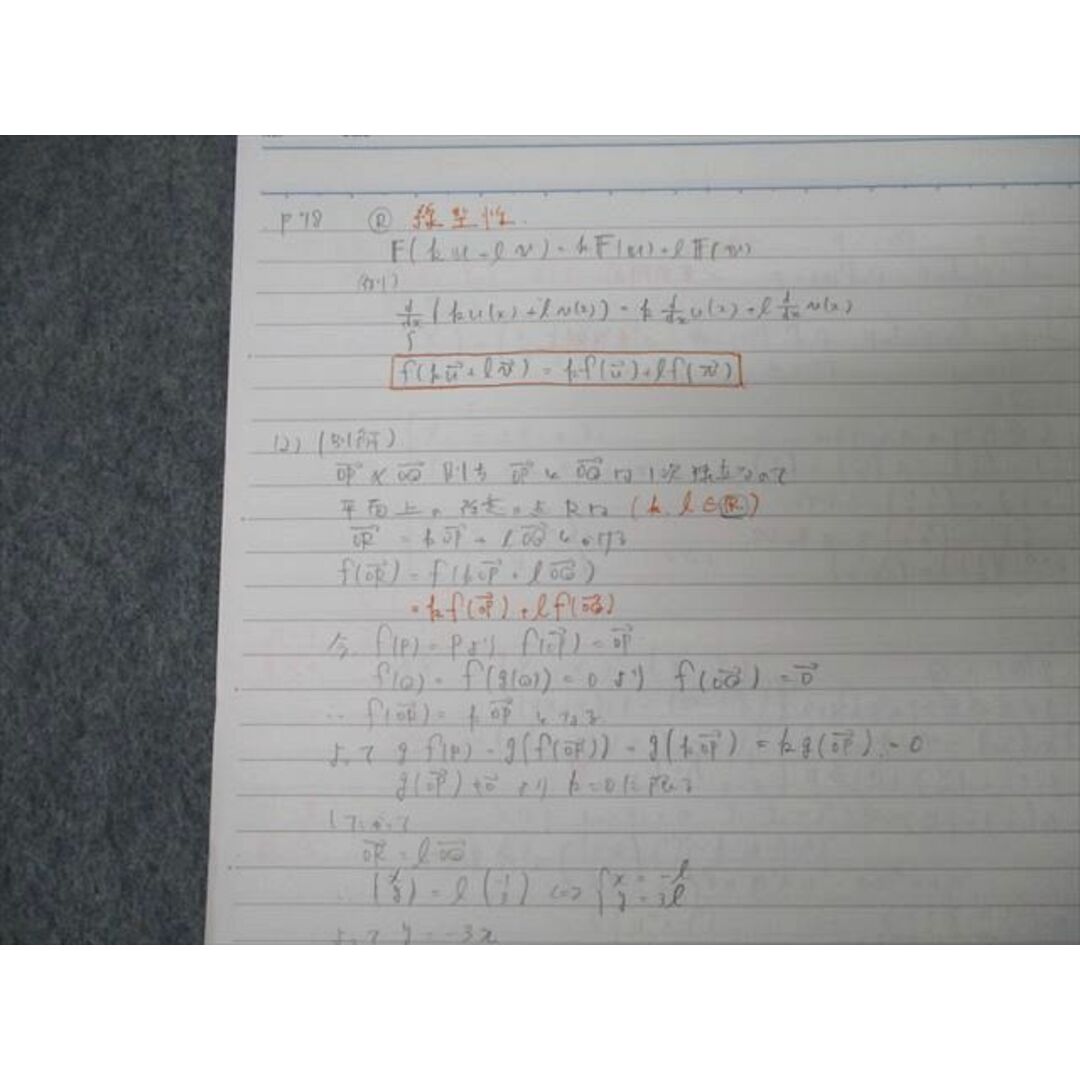 P78 Ⓡ 線型性.
F(ku+lv)=kF(u)+lF(v)
(例1)
d/dx (ku(x)+lv(x)) = k d/dx u(x) + l d/dx v(x)
f(ku⃗+lv⃗) = kf(u⃗)+lf(v⃗)
(2) (別解)
OP⃗ ∦ OQ⃗ 則ち OP⃗ と OQ⃗ は1次独立なので
平面上の任意の点Rは (k, l∈ℝ)
OR⃗ = kOP⃗ + lOQ⃗ とかける
f(OR⃗) = f(kOP⃗ + lOQ⃗)
= kf(OP⃗) + lf(OQ⃗)
今 f(P) = P より f(OP⃗) = OP⃗
f(Q) = f(g(Q)) = 0 より f(OQ⃗) = 0⃗
∴ f(OR⃗) = kOP⃗ となる
よって g f(P) = g(f(OP⃗)) = g(kOP⃗) = kg(OP⃗) = 0
g(OP⃗) ≠ 0⃗ より k=0に限る
したがって
OR⃗ = lOQ⃗
(x y) = l(-1 3) ⇔ { x = -l
y = 3l
よって y = -3x